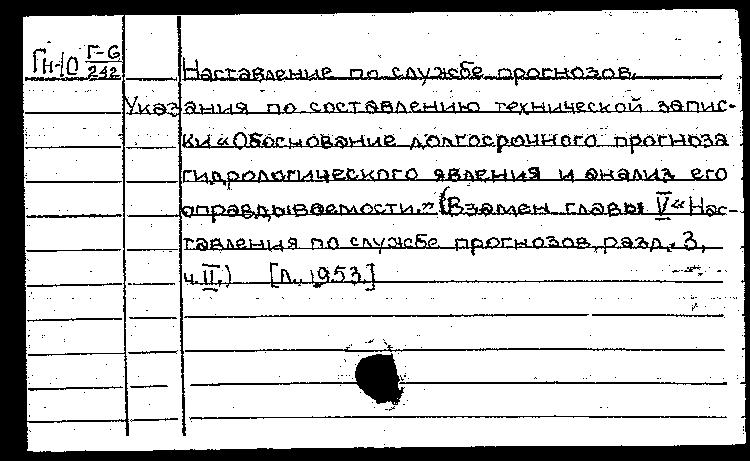 Гн-10 Г-6/242
Наставление по службе прогнозов.
Указания по составлению технической запис-
ки «Обоснование долгосрочного прогноза
гидрологического явления и анализ его
оправдываемости.” (Взамен главы V «Нас-
тавления по службе прогнозов, разд. 3,
ч. II.) [Л., 1953.]